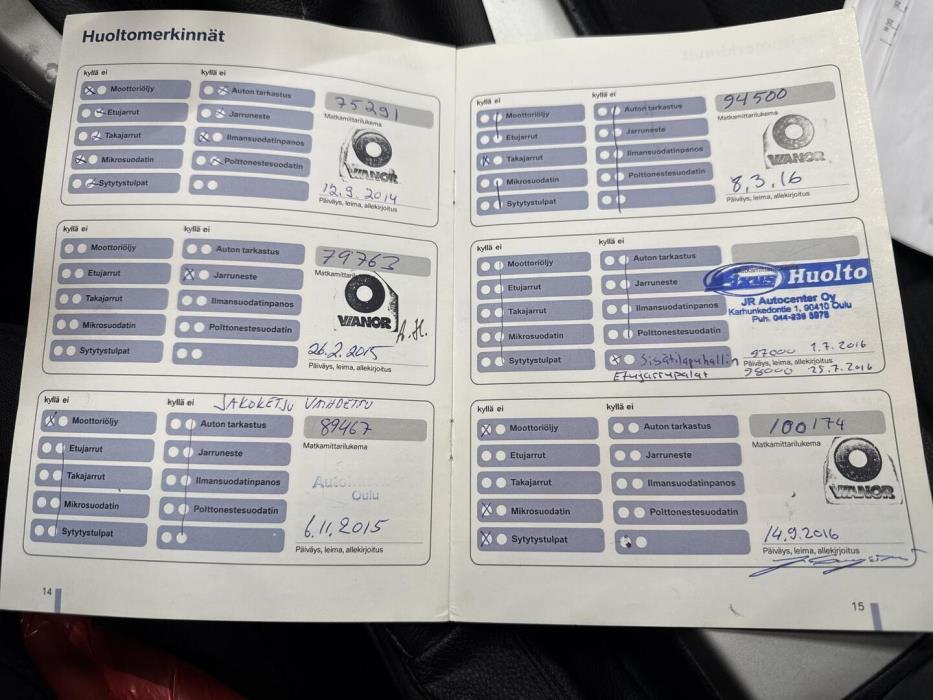 Huoltomerkinnät
kyllä ei
kyllä ei
Moottoriöljy
Auton tarkastus
75291
Etujarrut
Jarruneste
Matkamittarilukema
Takajarrut
Ilmansuodatinpanos
Mikrosuodatin
Polttonestesuodatin
VIANOR
Sytytystulpat
12.9.2014
Päiväys, leima, allekirjoitus
kyllä ei
kyllä ei
Moottoriöljy
Auton tarkastus
79763
Etujarrut
Jarruneste
Takajarrut
Ilmansuodatinpanos
Mikrosuodatin
Polttonestesuodatin
VIANOR
A.H.
Sytytystulpat
26.2.2015
Päiväys, leima, allekirjoitus
JAKOKETJU VAIHDETTU
kyllä ei
kyllä ei
Moottoriöljy
Auton tarkastus
89467
Etujarrut
Jarruneste
Matkamittarilukema
Takajarrut
Ilmansuodatinpanos
Oulu
Mikrosuodatin
Polttonestesuodatin
6.11.2015
Sytytystulpat
Päiväys, leima, allekirjoitus
14
kyllä ei
kyllä ei
Moottoriöljy
Auton tarkastus
94500
Etujarrut
Jarruneste
Matkamittarilukema
Takajarrut
Ilmansuodatinpanos
VIANOR
Mikrosuodatin
Polttonestesuodatin
8.3.16
Sytytystulpat
Päiväys, leima, allekirjoitus
kyllä ei
kyllä ei
Moottoriöljy
Auton tarkastus
Etujarrut
Jarruneste
Huolto
Takajarrut
Ilmansuodatinpanos
JR Autocenter Oy
Karhunkedontie 1, 90410 Oulu
Puh. 044-239 8878
Mikrosuodatin
Polttonestesuodatin
Sytytystulpat
Sisätilapuhallin
97000 1.7.2016
Päiväys, leima, allekirjoitus
Etujarrupalat
98000 25.7.2016
kyllä ei
kyllä ei
Moottoriöljy
Auton tarkastus
100174
Etujarrut
Jarruneste
Matkamittarilukema
Takajarrut
Ilmansuodatinpanos
VIANOR
Mikrosuodatin
Polttonestesuodatin
Sytytystulpat
14.9.2016
Päiväys, leima, allekirjoitus
15